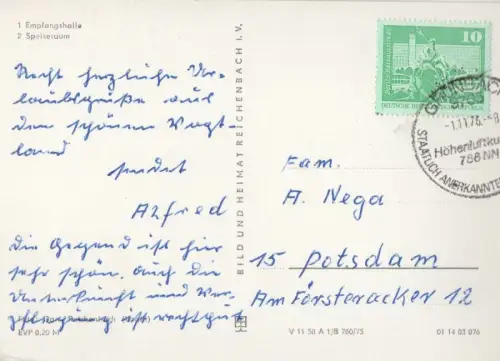 1 Empfangshalle
2 Speiseraum
Recht herzliche Ur-
laubsgrüße aus
dem schönen Vogt-
land
sendet
Alfred
Die Gegend ist hier
sehr schön, auch die
Unterkunft und Ver-
pflegung ist recht gut
EVP 0,20 M
BILD UND HEIMAT REICHENBACH I. V.
10
-1.11.76.-8
Höhenluftku
STAATLICH ANERKANNTE
Fam.
A. Nega
15 Potsdam
Am Försteracker 12
V 11 50 A 1/B 760/75
01 14 03 076